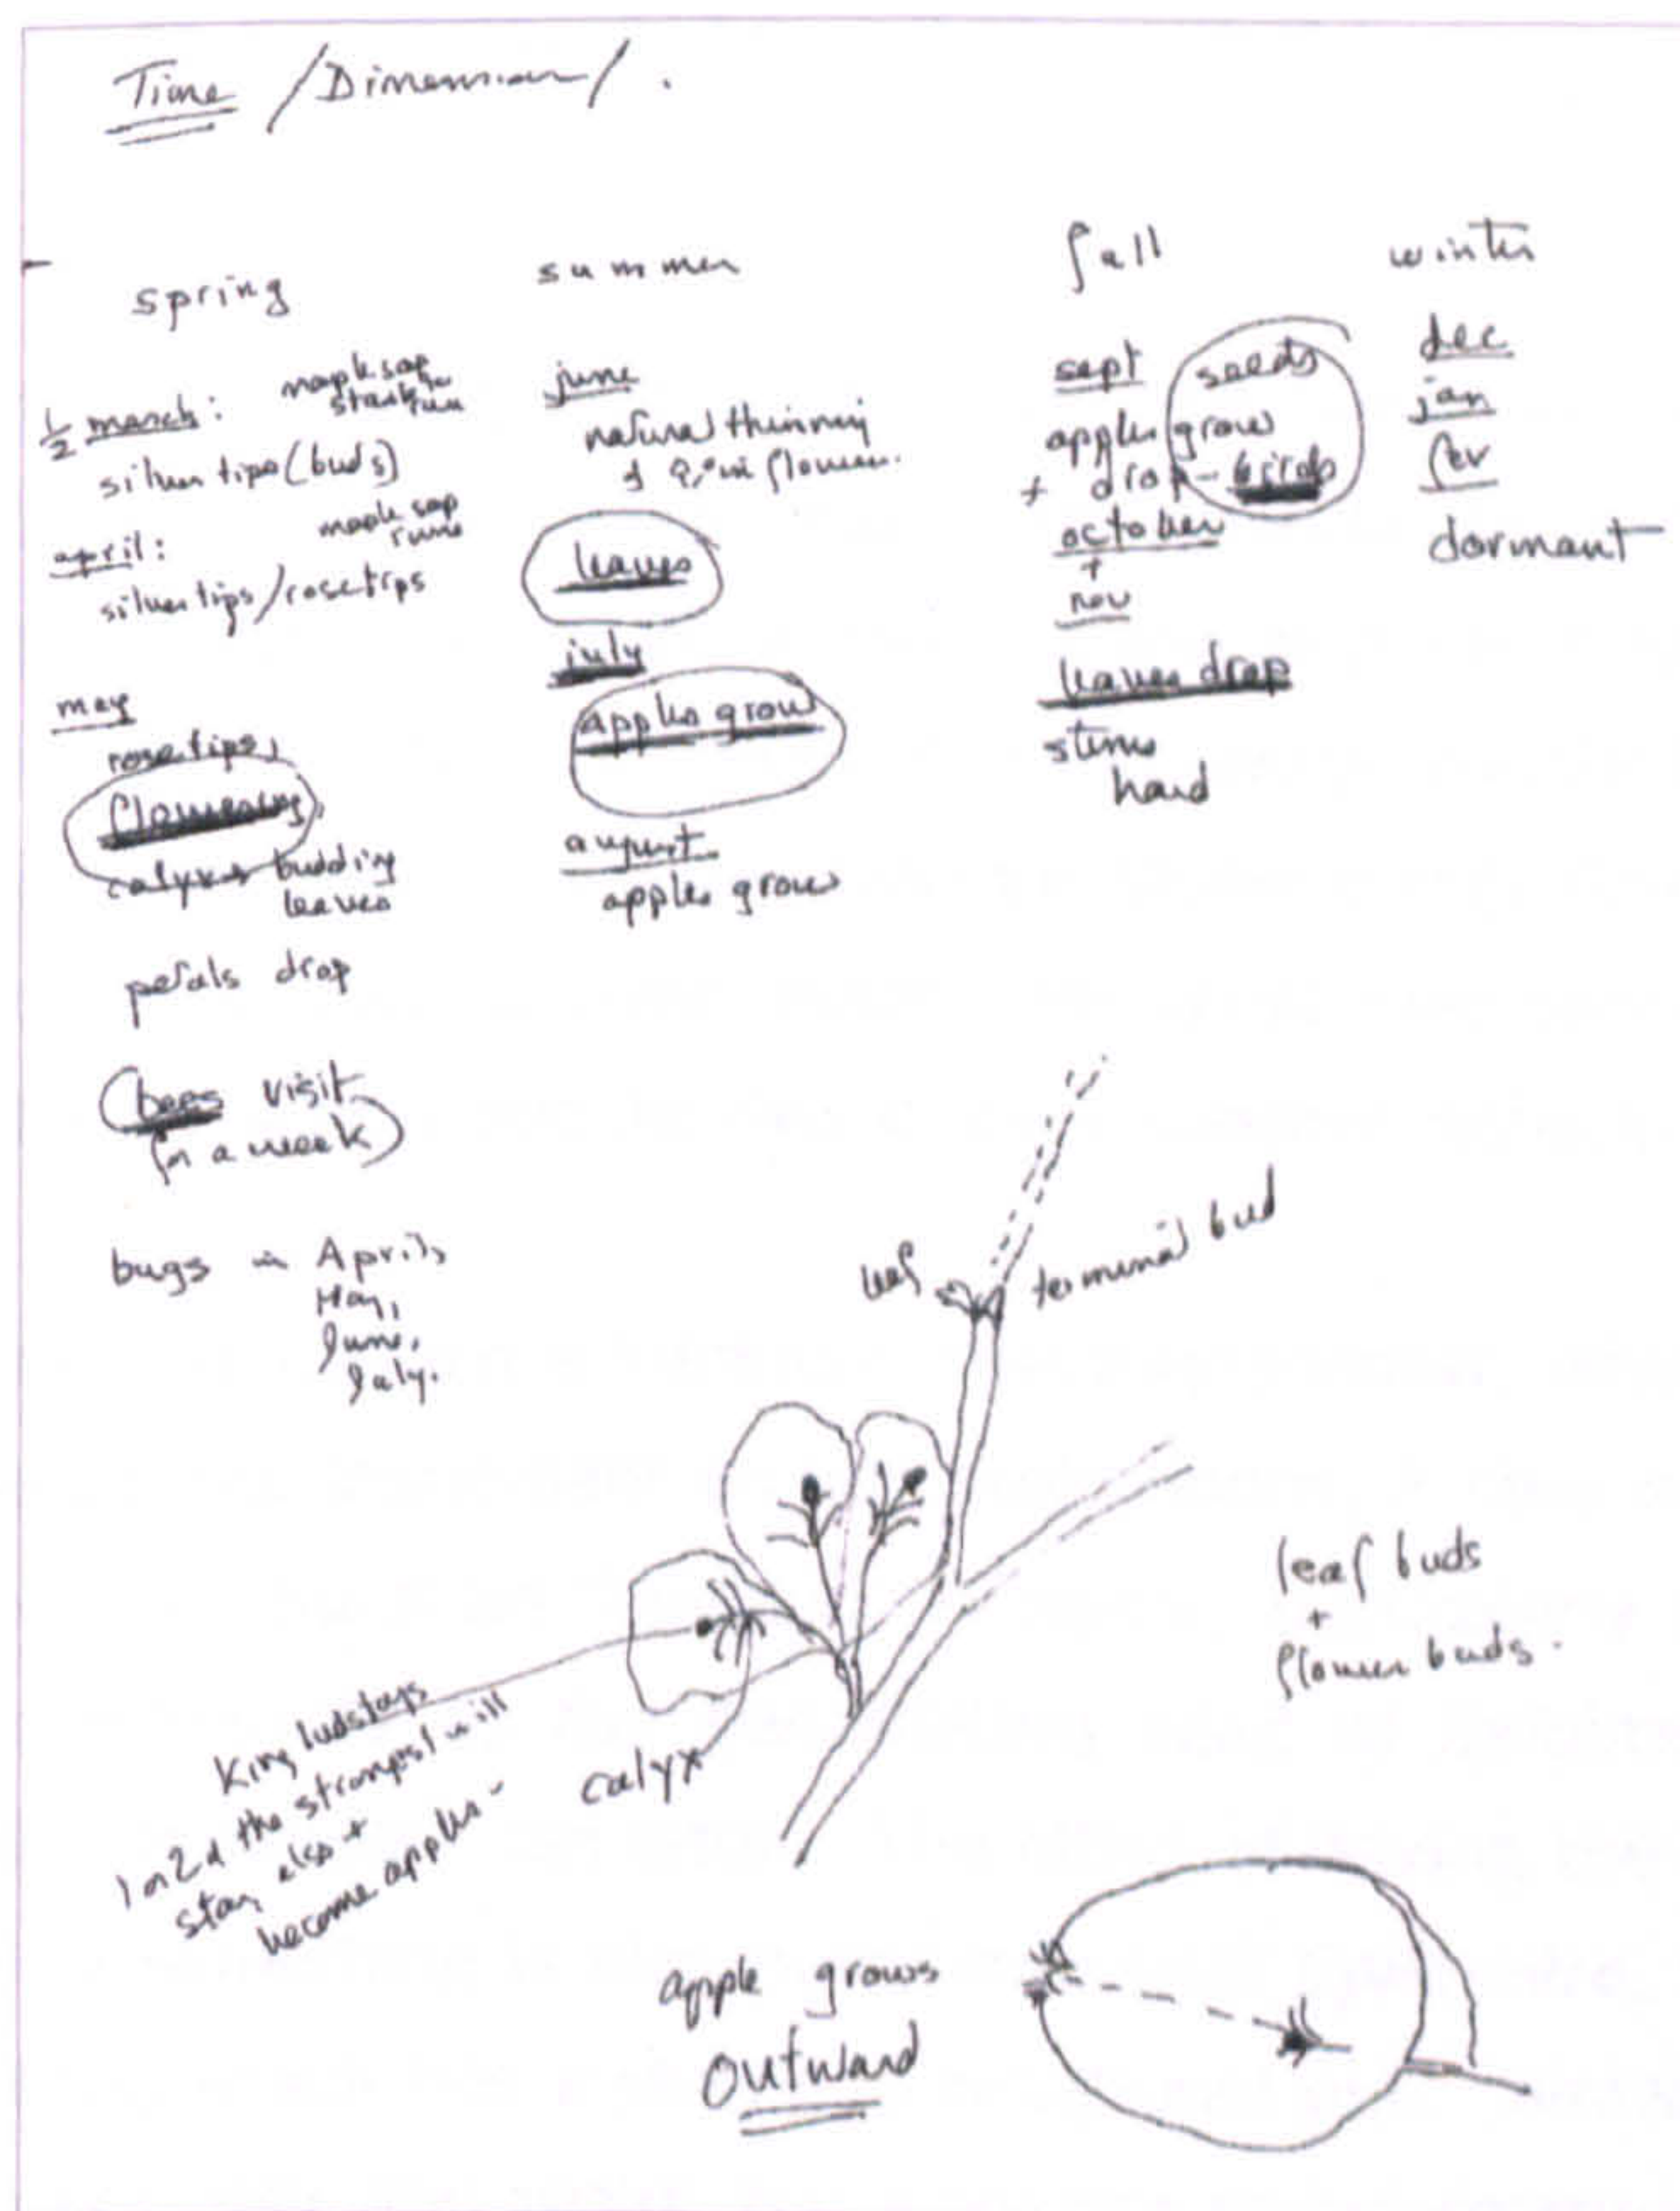 Time / Dimension / .
spring
½ march: maple sap
starts to run
silver tips (buds)
april: maple sap
runs
silver tips / rose tips
may
rose tips,
flowering,
calyx budding
leaves
petals drop
bees visit
(in a week)
bugs in April,
May,
June,
July.
summer
june
natural thinning
flower.
leaves
july
apples grow
august
apples grow
fall
sept seeds
apples grow
+ drop - birds
october
+
nov
leaves drop
stems
hard
winter
dec
jan
fev
dormant
leaf
terminal bud
leaf buds
+
flower buds.
calyx
King bud stays
1 or 2 of the strongest will
stay also +
become apples -
apple grows
outward